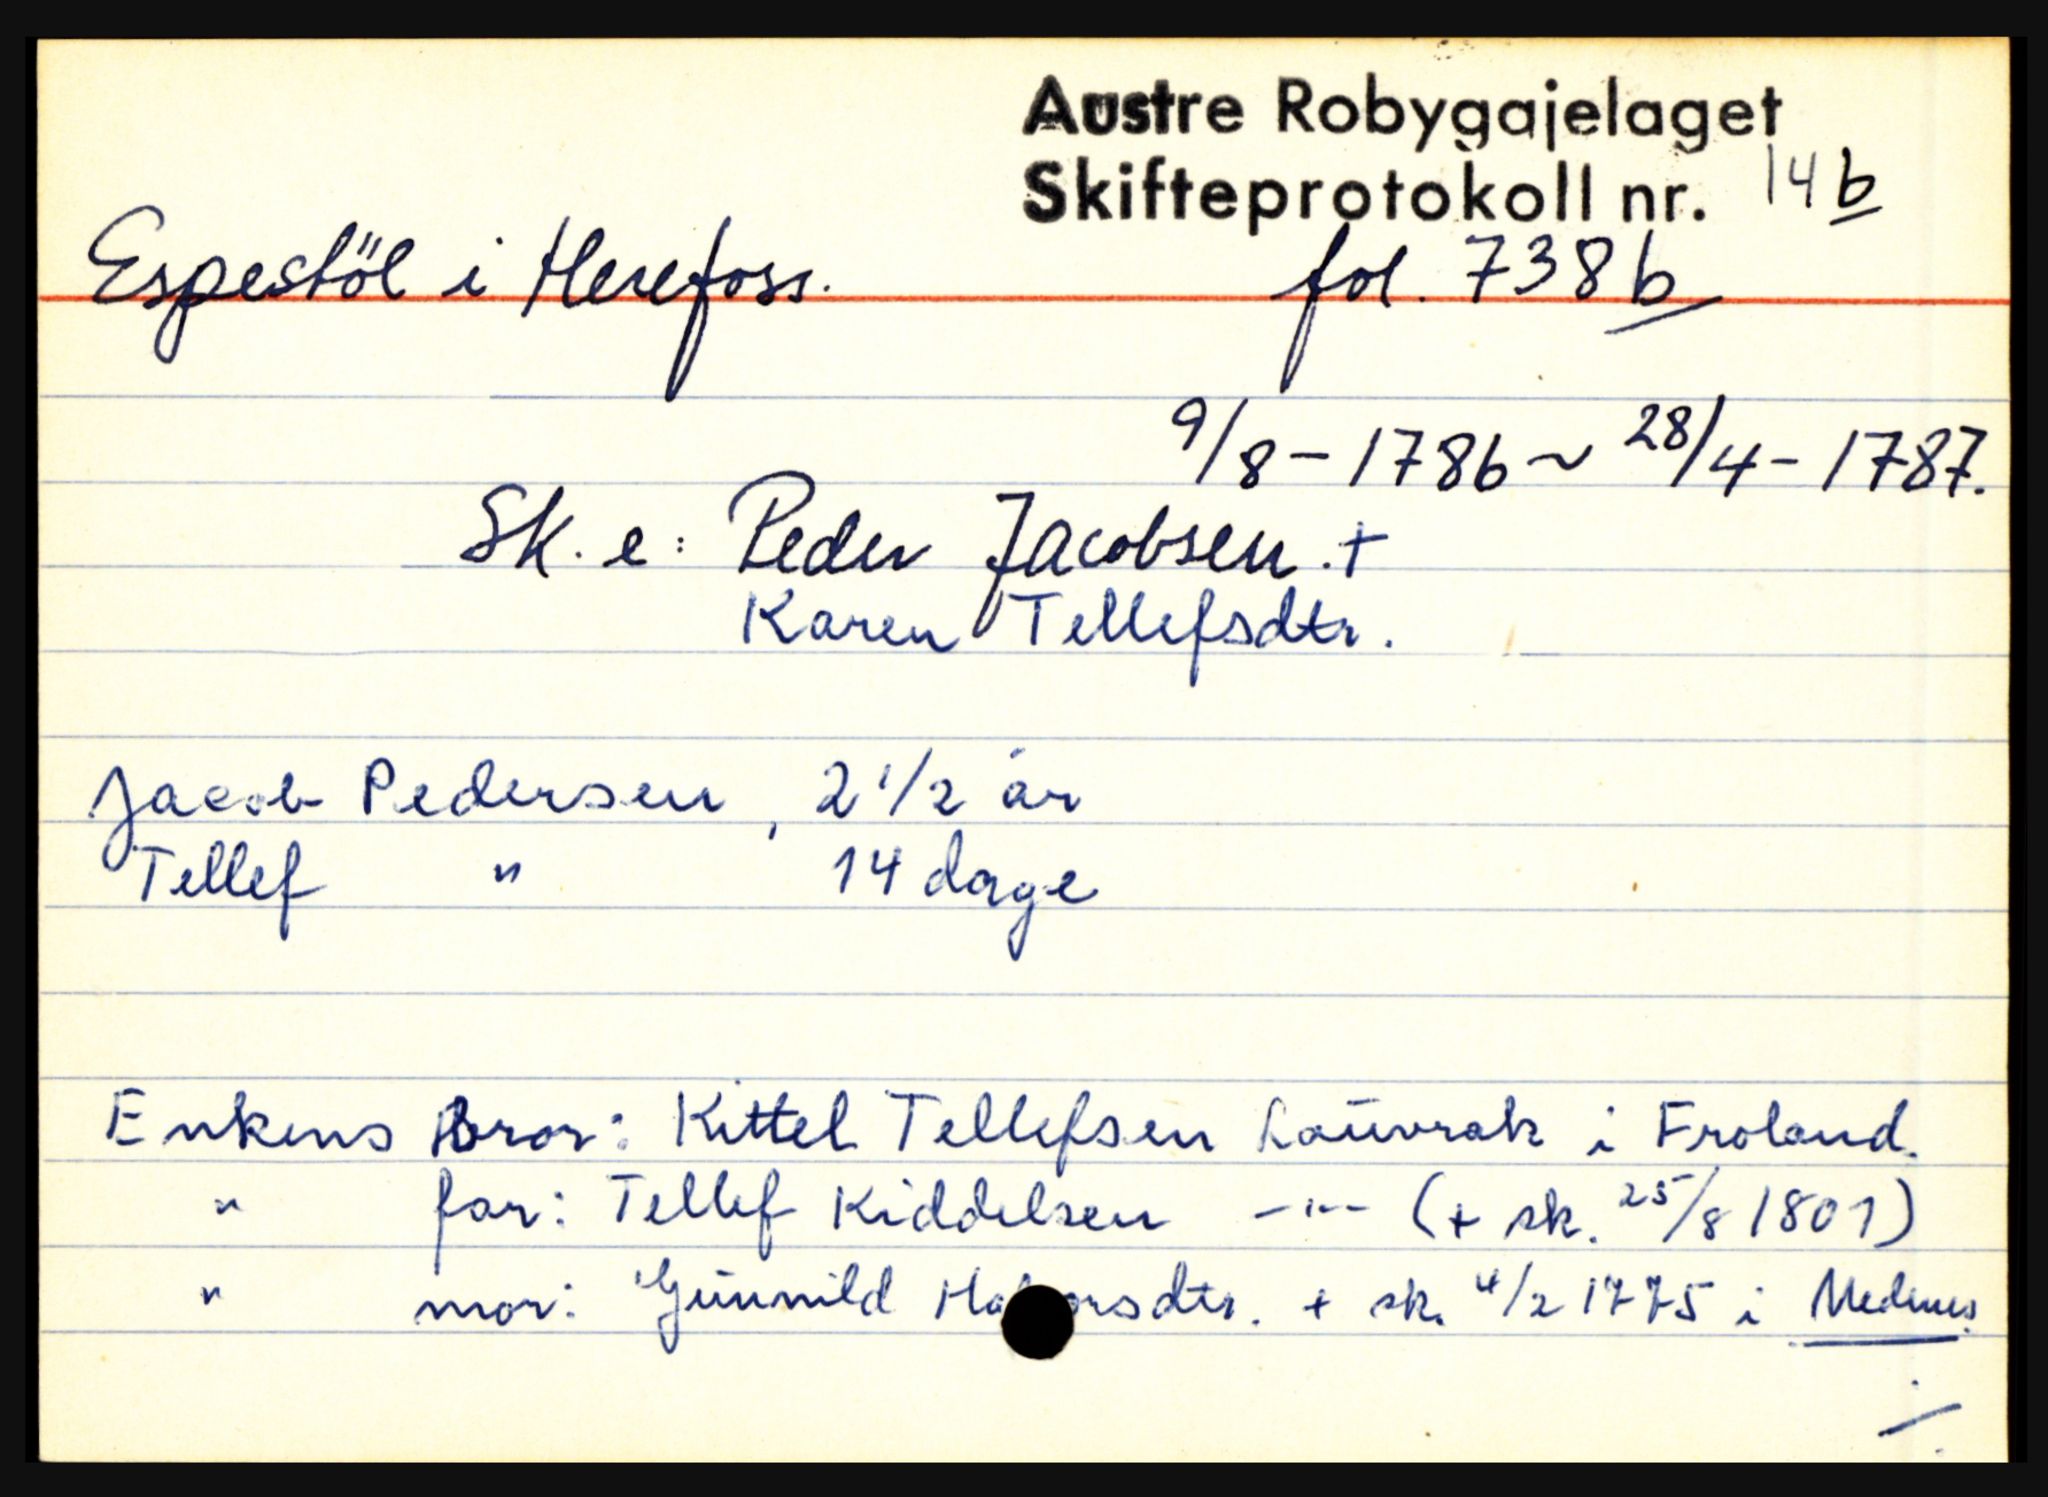 Austre Robygajelaget
Skifteprotokoll nr. 14 b
Espestöl i Herefoss. fol. 738 b
9/8 - 1786 ~ 28/4 - 1787.
Sk. e: Peder Jacobsen . +
Karen Tellefsdtr.
Jacob Pedersen, 2 1/2 år
Tellef " 14 dage
Enkens Bror: Kittel Tellefsen Lauvrak i Froland.
" far: Tellef Kiddelsen -"- (+ sk. 25/8 1801)
" mor: Gunnild dtr. + sk. 4/2 1775 i Medenes.